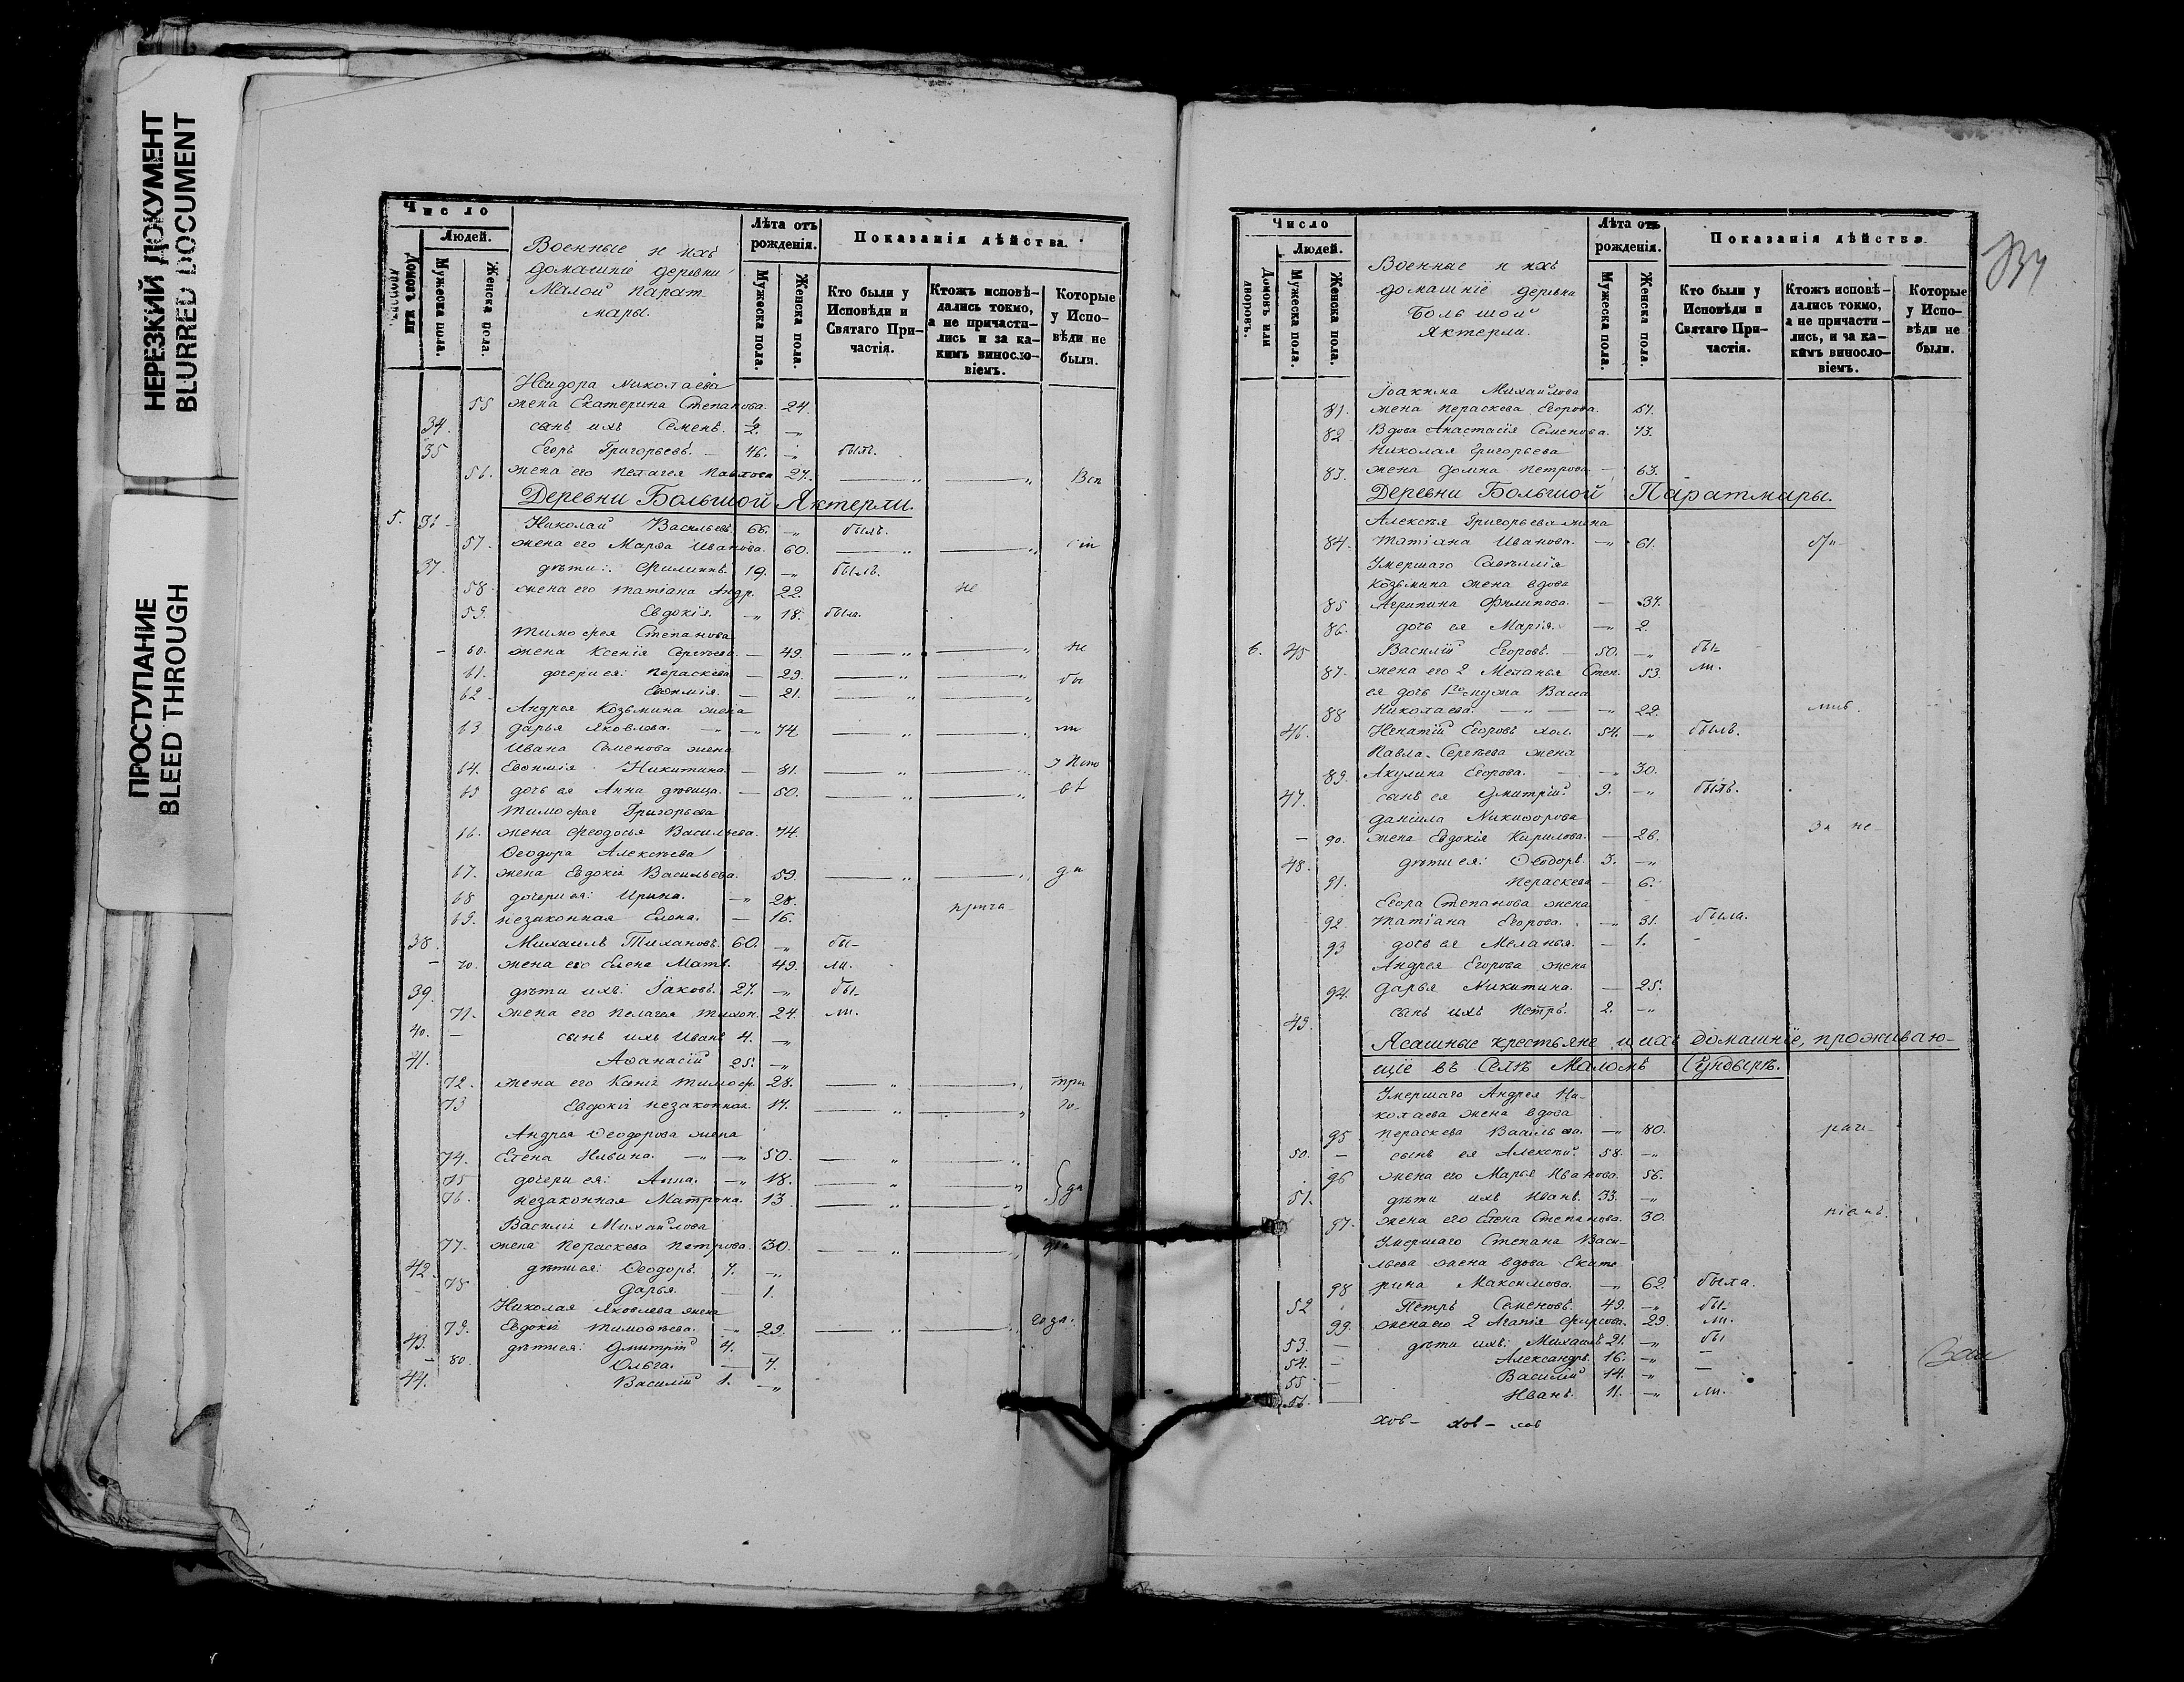 НЕРЕЗКИЙ ДОКУМЕНТ
BLURRED DOCUMENT
ПРОСТУПАНИЕ
BLEED THROUGH
Число
Людей.
Домовъ или дворовъ.
Мужеска пола.
Женска пола.
Военные и ихъ
домашніе деревни
Малой Парат-
мары.
Лѣта отъ рожденія.
Мужеска пола.
Женска пола.
Показанія дѣйства.
Кто были у Исповѣди и Святаго При-частія.
Ктожъ исповѣ-дались токмо, а не причасти-лись и за ка-кимъ винослο-віемъ.
Которые у Испо-вѣди не были.
Исидора Николаева
55 жена Екатерина Степанова. 24.
34. сынъ ихъ Семенъ. ½. -„
35 Егоръ Григорьевъ. - 46. -„ былъ.
56. жена его Пелагея Павлова 27. „ „
Деревни Большой Яктерли.
5. Николай Васильевъ. 66. -„ былъ.
57. жена его Марѳа Иванова. 60. „ „
37. дѣти: Филиппъ. 19. -„ былъ.
58. жена его Татіана Андр. 22. не
59. Евдокія. -„ 18. была.
Тимофея Степанова
60. жена Ксенія Сергѣева. - 49. „ „ не
61. дочери ея: Пераскева - 29. „ „ бы
62 Евѳимія. - 21. „ „
Андрея Козьмина жена
63 Дарья Яковлева. -„ 74 „ „ ли
Ивана Семенова жена
64. Евѳимія Никитина - 81. „ „ у Испо
65 дочь ея Анна дѣвица. - 50. „ „ вѣ
Тимофея Григорьева
66. жена Феодосья Васильева. 74.
Ѳеодора Алексѣева
67. жена Евдокія Васильева. 59. „ „ ди
68 дочери ея: Ирина. -„ 28.
69. незаконная Елена. - 16. прича
38. Михаилъ Тихановъ. 60. -„ бы-
70. жена его Елена Матв. 49. ли.
39. дѣти ихъ: Іаковъ. 27. -„ бы-
71. жена его Пелагея Тихон. 24. ли.
40. - сынъ ихъ Иванъ 4. -„
41. Аѳанасій 25. -„
72. жена его Ксенія Тимоѳ. 28. „ „ три
73 Евдокія незаконная. 17. „ „ го-
Андрея Ѳеодорова жена
74. Елена Ильина. -„ -„ 50. „ „
75 дочери ея: Анна. -„ 18. „ „ да
76. незаконная Матрона. 13 „
Василія Михайлова
77. жена Пераскева Петрова. 30. „ „ два
42. дѣти ея: Ѳеодоръ. 7. -„
78 Дарья. - 1.
Николая Яковлева жена
79. Евдокія Тимоѳѣева. -„ 29. „ „ года.
43. дѣти ея: Дмитрій 4. -
80. Ольга. - 7.
44. Василій 1. -„
Число
Людей.
Домовъ или дворовъ.
Мужеска пола.
Женска пола.
Военные и ихъ
домашніе деревни
Большой
Яктерли.
Лѣта отъ рожденія.
Мужеска пола.
Женска пола.
Показанія дѣйства.
Кто были у Исповѣди и Святаго При-частія.
Ктожъ исповѣ-дались токмо, а не причасти-лись, и за ка-кимъ винослο-віемъ.
Которые у Испо-вѣди не были.
Іоакима Михайлова
81. жена Пераскева Егорова. 57.
82 Вдова Анастасія Семенова. 73.
Николая Григорьева
83. жена Домна Петрова. - 63.
Деревни Большой Паратмары.
Алексѣя Григорьева жена
84. Татіана Иванова. -„ 61.
Умершаго
Козьмина жена вдова
85 Агрипина Филипова. - 37.
86. дочь ея Марія. -„ 2.
6. 45 Василій Егоровъ. - 50. -„ бы-
87. жена его 2 Меланья Степ. 53. ли.
ея дочь 1го мужа Васса
88 Николаева. -„ - -„ 22.
46. Игнатій Егоровъ хол. 54. -„ былъ.
Павла Сергѣева жена
89. Акулина Егорова. - -„ 30.
47. сынъ ея Дмитрій. 9. -„ былъ.
Даніила Никифорова
- 90. жена Евдокія Кирилова. - 26. За не
48. дѣти ея: Ѳеодоръ. 3. -„
91. Пераскева - 6.
Егора Степанова жена
92. Татіана Егорова. -„ 31. была.
93 дочь ея Меланья. - 1. -
Андрея Егорова жена
94. Дарья Никитина. - 25.
49. сынъ ихъ Петръ. 2. -„
Ясашные крестьяне и ихъ домашніе, проживаю-
щіе въ Селѣ Маломъ Сундырѣ.
Умершаго Андрея Ни-
колаева жена вдова
95 Пераскева Васильева. -„ 80.
50. - сынъ ея Алексѣй 58. -„
96 жена его Марья Иванова. 56.
51. дѣти ихъ Иванъ. 33. -„
97. жена его Елена Степанова. 30.
Умершаго Степана Васи-
льева жена вдова Екате
98 рина Максимова. -„ 62. была.
52 Петръ Семеновъ. 49. -„ бы-
99. жена его 2 Агапія Фирсова. 29. ли.
53. - дѣти ихъ: Михаилъ 21. -„ бы
54. - Александръ. 16. -„ -
55 - Василій 14. -„ -
56. - Иванъ. 11. -„ ли.
хов- хов- хов